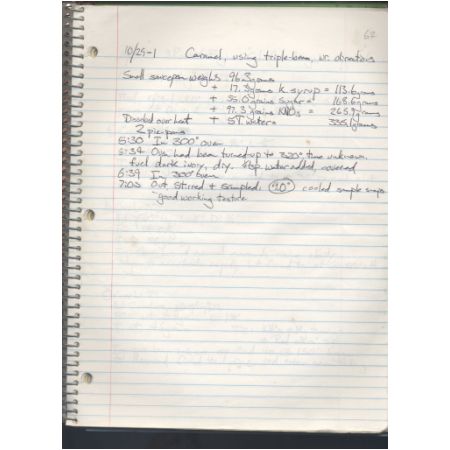 62
10/25-1 Caramel, using triple-beam, w. directions
Small saucepan weighs 96.3 grams
+ 17.3 grams k syrup = 113.6 grams
+ 55.0 grams sugar = 168.6 grams
+ 97.3 grams KNO3 = 265.9 grams
Dissolved over heat + 5T water =
2 pie pans.
5:30 In 300° oven
5:34 Oven had been turned up to 320°, time unknown.
fuel dark ivory, dry. water added, covered
6:39 In 300° oven
7:03 Out, stirred & sampled. cooled sample snaps
good working texture